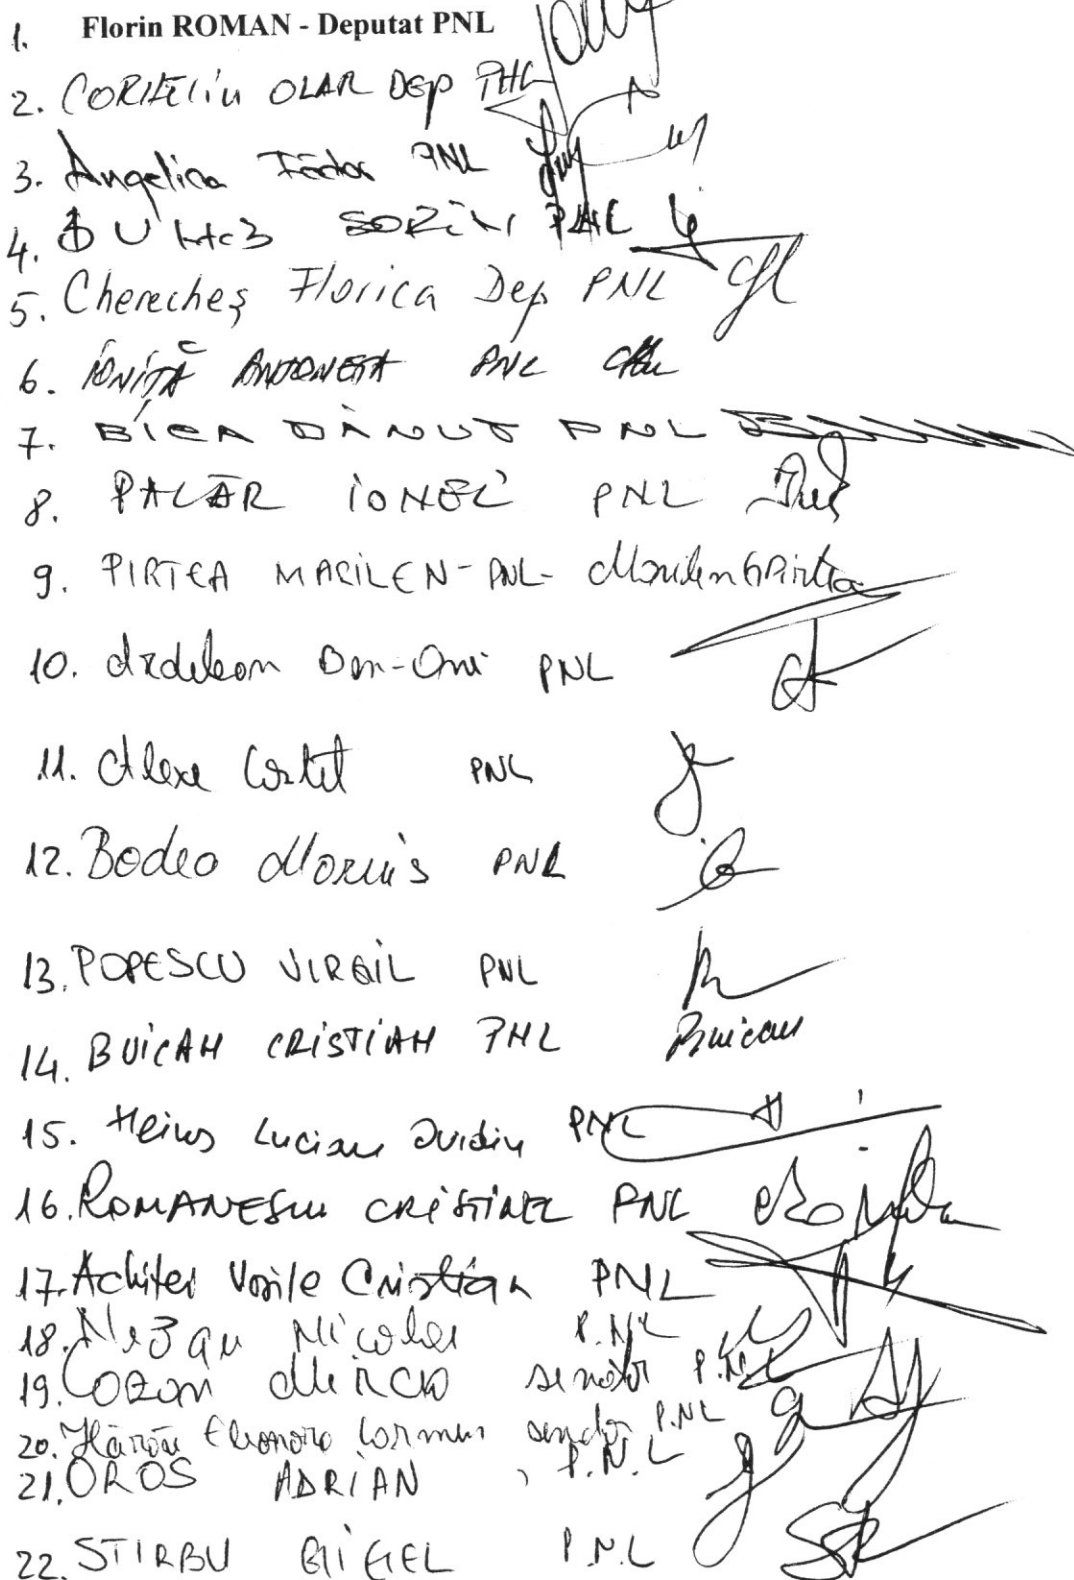 1. Florin ROMAN - Deputat PNL
2. CORNELIU OLAR DEP PNL
3. Angelica Fădor PNL
4. SORIN PNL
5. Cherecheș Florica Dep PNL
6. IONIȚĂ ANTONETA PNL
7. BICA DĂNUȚ PNL
8. PALĂR IONEL PNL
9. PIRTEA MARILEN - PNL - Marilen Pirtea
10. Ardelean Ben-Oni PNL
11. Alexe Costel PNL
12. Bodea Marius PNL
13. POPESCU VIRGIL PNL
14. BUICAN CRISTIAN PNL Buican
15. Heius Lucian Ovidiu PNL
16. ROMANESCU CRISTINEL PNL
17. Achiței Vasile Cristian PNL
18. Nezau Nicolae P.N.L
19. Cozan Mircea senator P.N.L
20. Hărău Eleonora Carmen senator P.NL
21. OROS ADRIAN , P.N.L
22. STIRBU GIGEL P.N.L